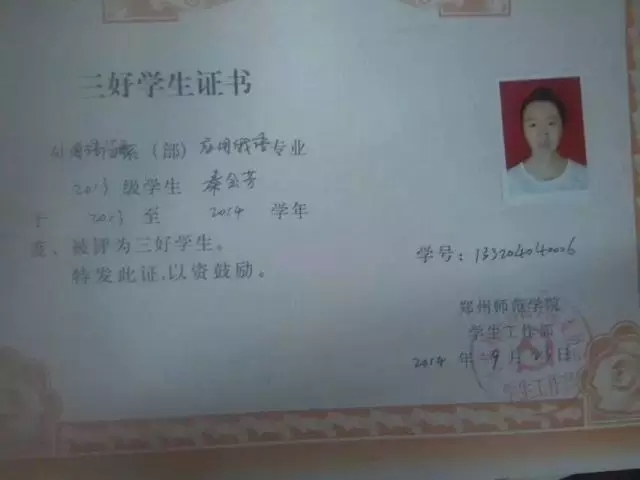 三好学生证书
外国语言系（部）应用俄语专业
2013 级学生 秦会芳
于 2013 至 2014 学年
度，被评为三好学生。
特发此证，以资鼓励。
学号：133204040006
郑州师范学院
学生工作部
2014 年 9 月 日
学生工作